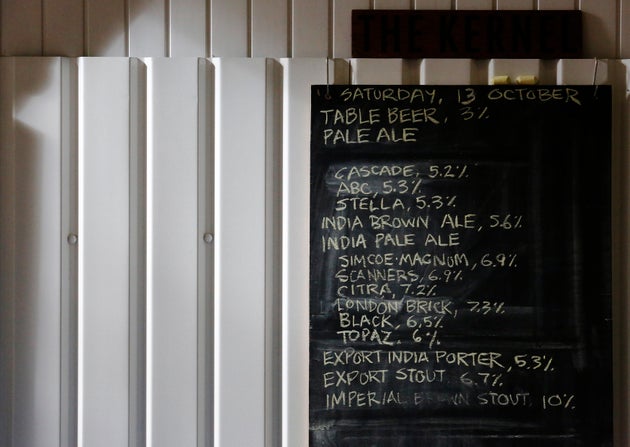 THE KERNEL
SATURDAY, 13 OCTOBER
TABLE BEER, 3%
PALE ALE
CASCADE, 5.2%
ABC, 5.3%
STELLA, 5.3%
INDIA BROWN ALE, 5.6%
INDIA PALE ALE
SIMCOE·MAGNUM, 6.9%
SCANNERS, 6.9%
CITRA, 7.2%
LONDON BRICK, 7.3%
BLACK, 6.5%
TOPAZ, 6%
EXPORT INDIA PORTER, 5.3%
EXPORT STOUT 6.7%
IMPERIAL BROWN STOUT, 10%